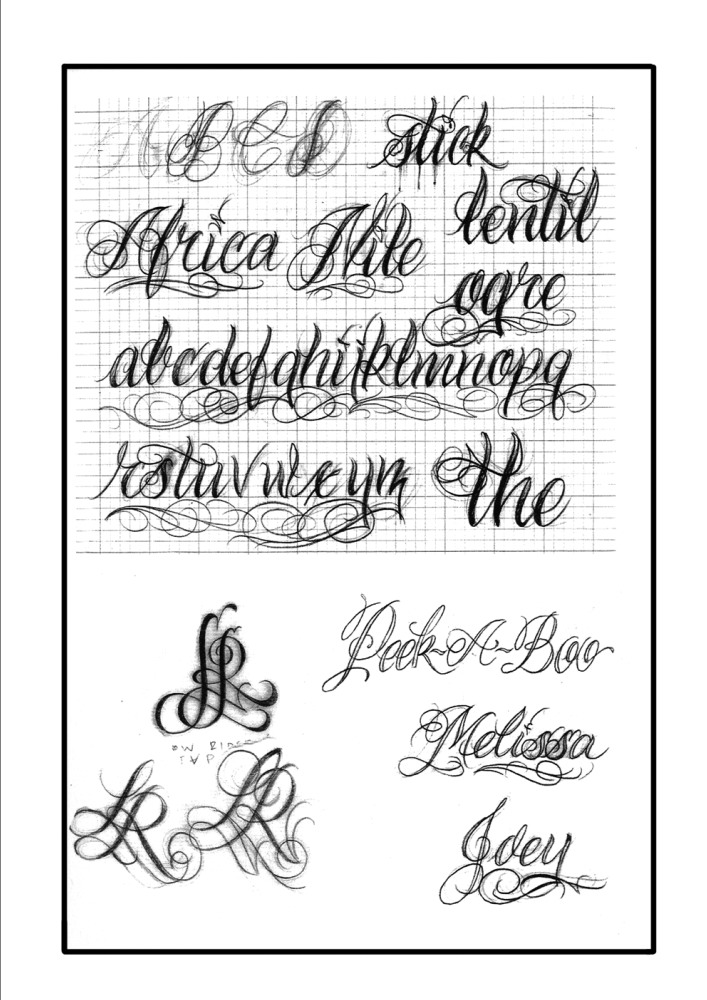 A B C D
stick
lentil
Africa Nile
ogre
abcdefghijklmnopq
rstuvwxyz
the
LR
Peek-A-Boo
Melissa
LR LR
Joey